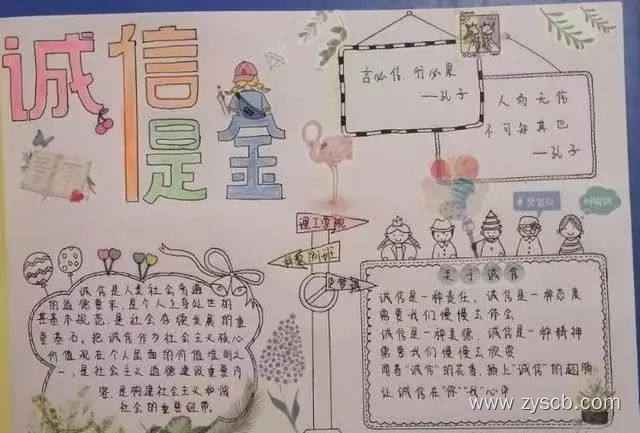 诚信是金
言必信，行必果
——孔子
人而无信
不可知其也
——孔子
诚信是人类社会普遍
的道德要求，是个人立身处世的
基本规范，是社会存续发展的重
要基石，把诚信作为社会主义核心
价值观在个人层面的价值准则之
一，是社会主义道德建设重要内
容，是构建社会主义和谐
社会的重要纽带。
关于诚信
诚信是一种责任，诚信是一种态度
需要我们慢慢去体会
诚信是一种美德，诚信是一种精神
需要我们慢慢去欣赏
闻着"诚信"的花香，插上"诚信"的翅膀
让诚信在"你""我"心中
www.zyscb.com